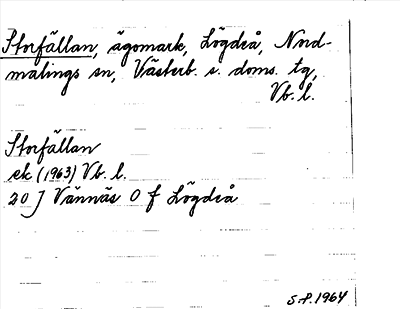 Storfällan, ägomark, Lögdeå, Nord-
malings sn, Västerb. s. doms. tg,
Vb. l.
Storfällan
ek (1963) Vb. l.
20 J Vännäs O f Lögdeå
S.P. 1964